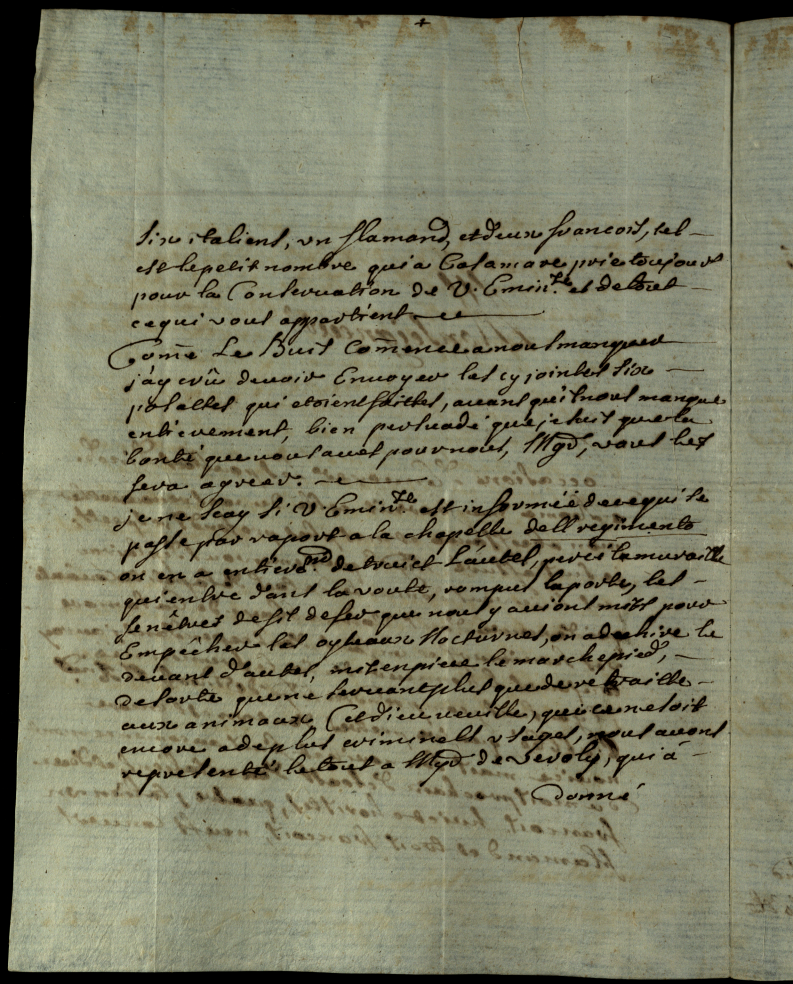 six italiens, un flamand, et deux francois, tel
est le petit nombre qui a Casamare prie toujours
pour la Conservation de V. Emin.ce et de tout
ce qui vous appartient
Come Le Buis Comence a nous manquer
j'ay crû devoir Envoyer les cy jointes six
qui etoient faittes, avant qu'il nous manque
entierement, bien persuadé que je suis que la
bonté que vous avez pour nous, Mgr, vous les
fera agreer.
je ne scay si V. Emin.ce est informéé de ce qui se
passe par raport a la chapelle dell regimento
on en a entierem.t detruict L'autel, percé la muraille
qui entre dans la voute, rompus la porte, les
fenêtres de fil de fer que nous y avions miss pour
Empêcher les oyseaux Nocturnes, on a dechire le
devant d'autel, mis en piece le marchepied,
de sorte que ne servant plus que de retraitte
aux animaux (et dieu veuille, que ce ne soit
encore a de plus criminels usages, nous avons
representé le tout a Mgr de Veroly, qui á
donné